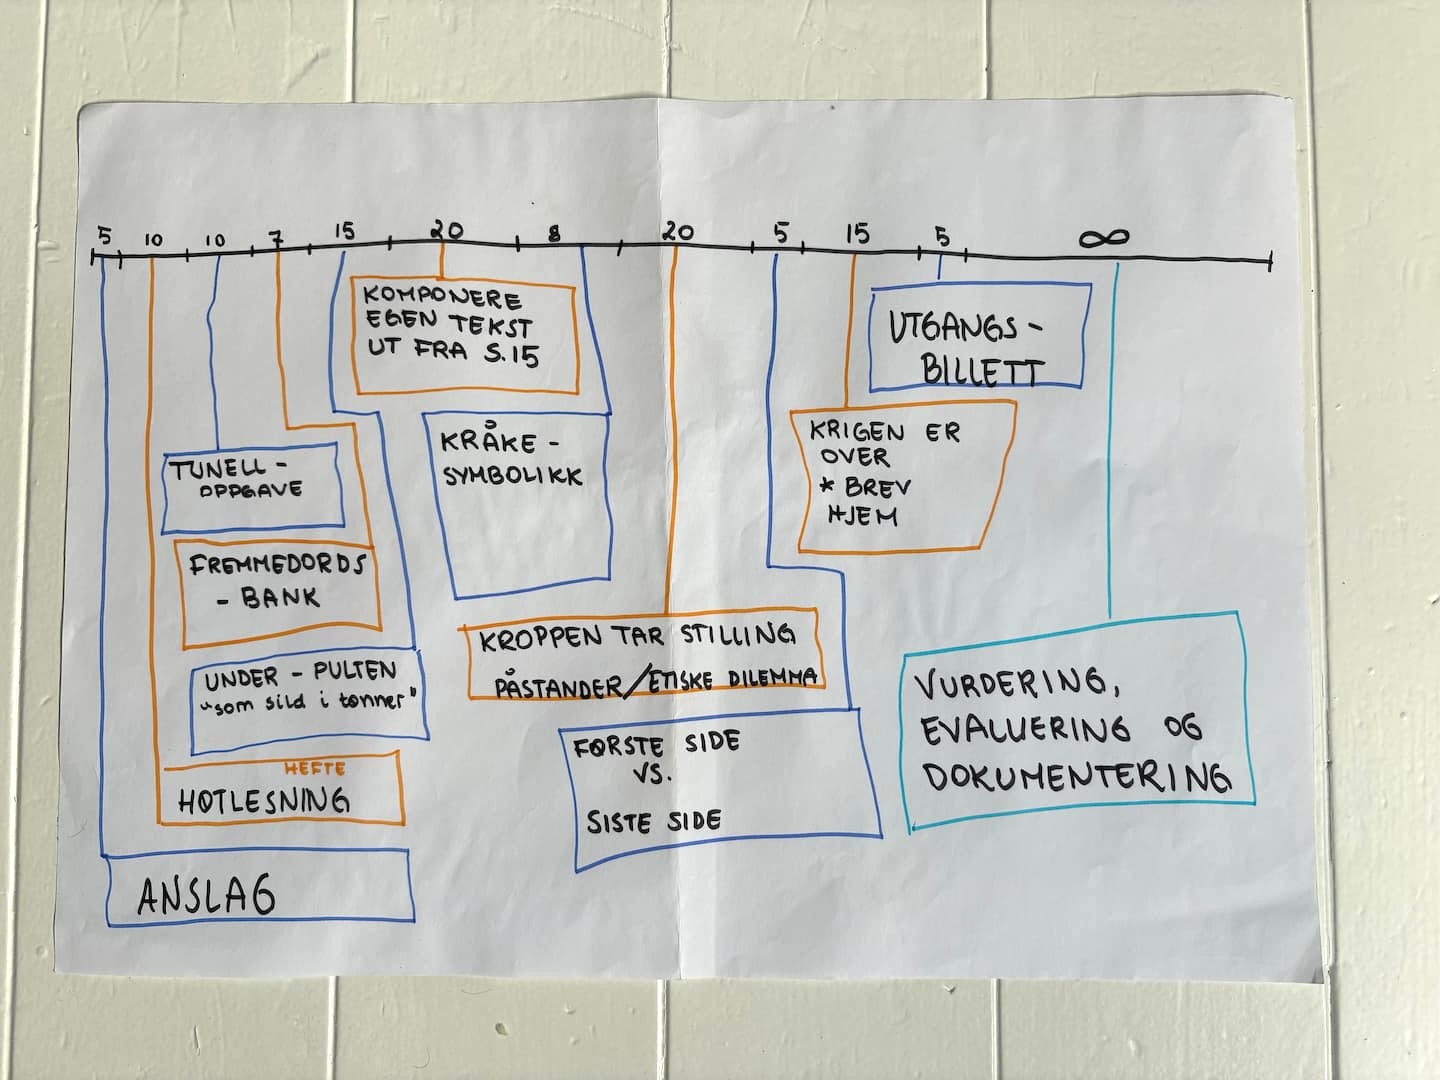 5 10 10 7 15 20 8 20 5 15 5 ∞
KOMPONERE
EGEN TEKST
UT FRA S.15
UTGANGS-
BILLETT
KRÅKE-
SYMBOLIKK
KRIGEN ER
OVER
* BREV
HJEM
TUNELL-
OPPGAVE
FREMMEDORDS
- BANK
UNDER - PULTEN
"som sild i tønner"
HEFTE
HØTLESNING
ANSLAG
KROPPEN TAR STILLING
PÅSTANDER/ETISKE DILEMMA
FØRSTE SIDE
VS.
SISTE SIDE
VURDERING,
EVALUERING OG
DOKUMENTERING